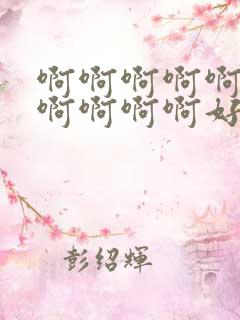 啊啊啊啊啊
啊啊啊啊好
彭绍辉